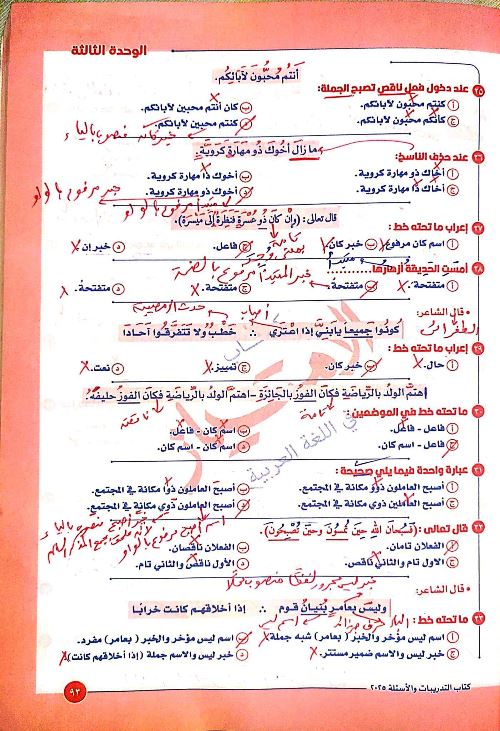 الوحدة الثالثة
أنتم محبون لآبائكم.
٢٥ عند دخول فعل ناقص تصبح الجملة:
أ كنتم محبون لآبائكم. ب كان أنتم محبين لآبائكم.
ج كأنكم محبون لآبائكم. د كنتم محبين لآبائكم.
خبر كان منصوب بالياء
ما زال أخوك ذو مهارة كروية.
٢٦ عند حذف الناسخ:
أ أخاك ذو مهارة كروية. ب أخوك ذا مهارة كروية.
ج أخاك ذا مهارة كروية. د أخوك ذو مهارة كروية.
خبر مرفوع بالواو
مبتدأ مرفوع بالواو
قال تعالى: (وَإِن كَانَ ذُو عُسْرَةٍ فَنَظِرَةٌ إِلَىٰ مَيْسَرَةٍ).
٢٧ إعراب ما تحته خط:
أ اسم كان مرفوع ب خبر كان ج فاعل. د خبر إن
تامة
٢٨ أمست الحديقة أزهارها........
مبتدأ
أ متفتحة. ب متفتحة ج متفتحة. د متفتحة.
خبر المبتدأ مرفوع بالضمة
قال الشاعر:
كونوا جميعاً يا بني إذا اعترى خطب ولا تتفرقوا آحادا
٢٩ إعراب ما تحته خط:
أ حال. ب خبر كان. ج تمييز. د نعت.
اهتم الولد بالرياضة فكان الفوز بالجائزة – اهتم الولد بالرياضة فكان الفوز حليفه.
تامة
ناقصة
٣٠ ما تحته خط في الموضعين:
أ فاعل - فاعل. ب اسم كان - فاعل.
ج فاعل - اسم كان. د اسم كان - اسم كان.
٣١ عبارة واحدة فيما يلي صحيحة:
أ أصبح العاملون ذوو مكانة في المجتمع. ب أصبح العاملون ذوا مكانة في المجتمع.
ج أصبح العاملين ذوي مكانة في المجتمع. د أصبح العاملون ذوي مكانة في المجتمع.
خبر أصبح منصوب بالياء
اسم أصبح مرفوع بالواو
لأنه ملحق بجمع المذكر السالم
٣٢ قال تعالى: (فَسُبْحَانَ اللَّهِ حِينَ تُمْسُونَ وَحِينَ تُصْبِحُونَ).
أ الفعلان تامان. ب الفعلان ناقصان.
ج الأول تام والثاني ناقص. د الأول ناقص والثاني تام.
خبر ليس مجرور لفظاً منصوب محلاً
قال الشاعر:
وليس بعامر بنيان قوم ∴ إذا أخلاقهم كانت خرابا
٣٣ ما تحته خط:
أ اسم ليس مؤخر والخبر (بعامر) شبه جملة ب اسم ليس مؤخر والخبر (بعامر) مفرد.
ج خبر ليس والاسم ضمير مستتر. د خبر ليس والاسم جملة (إذا أخلاقهم كانت)
كتاب التدريبات والأسئلة ٢٠٢٥
٩٣
الامتياز
في اللغة العربية